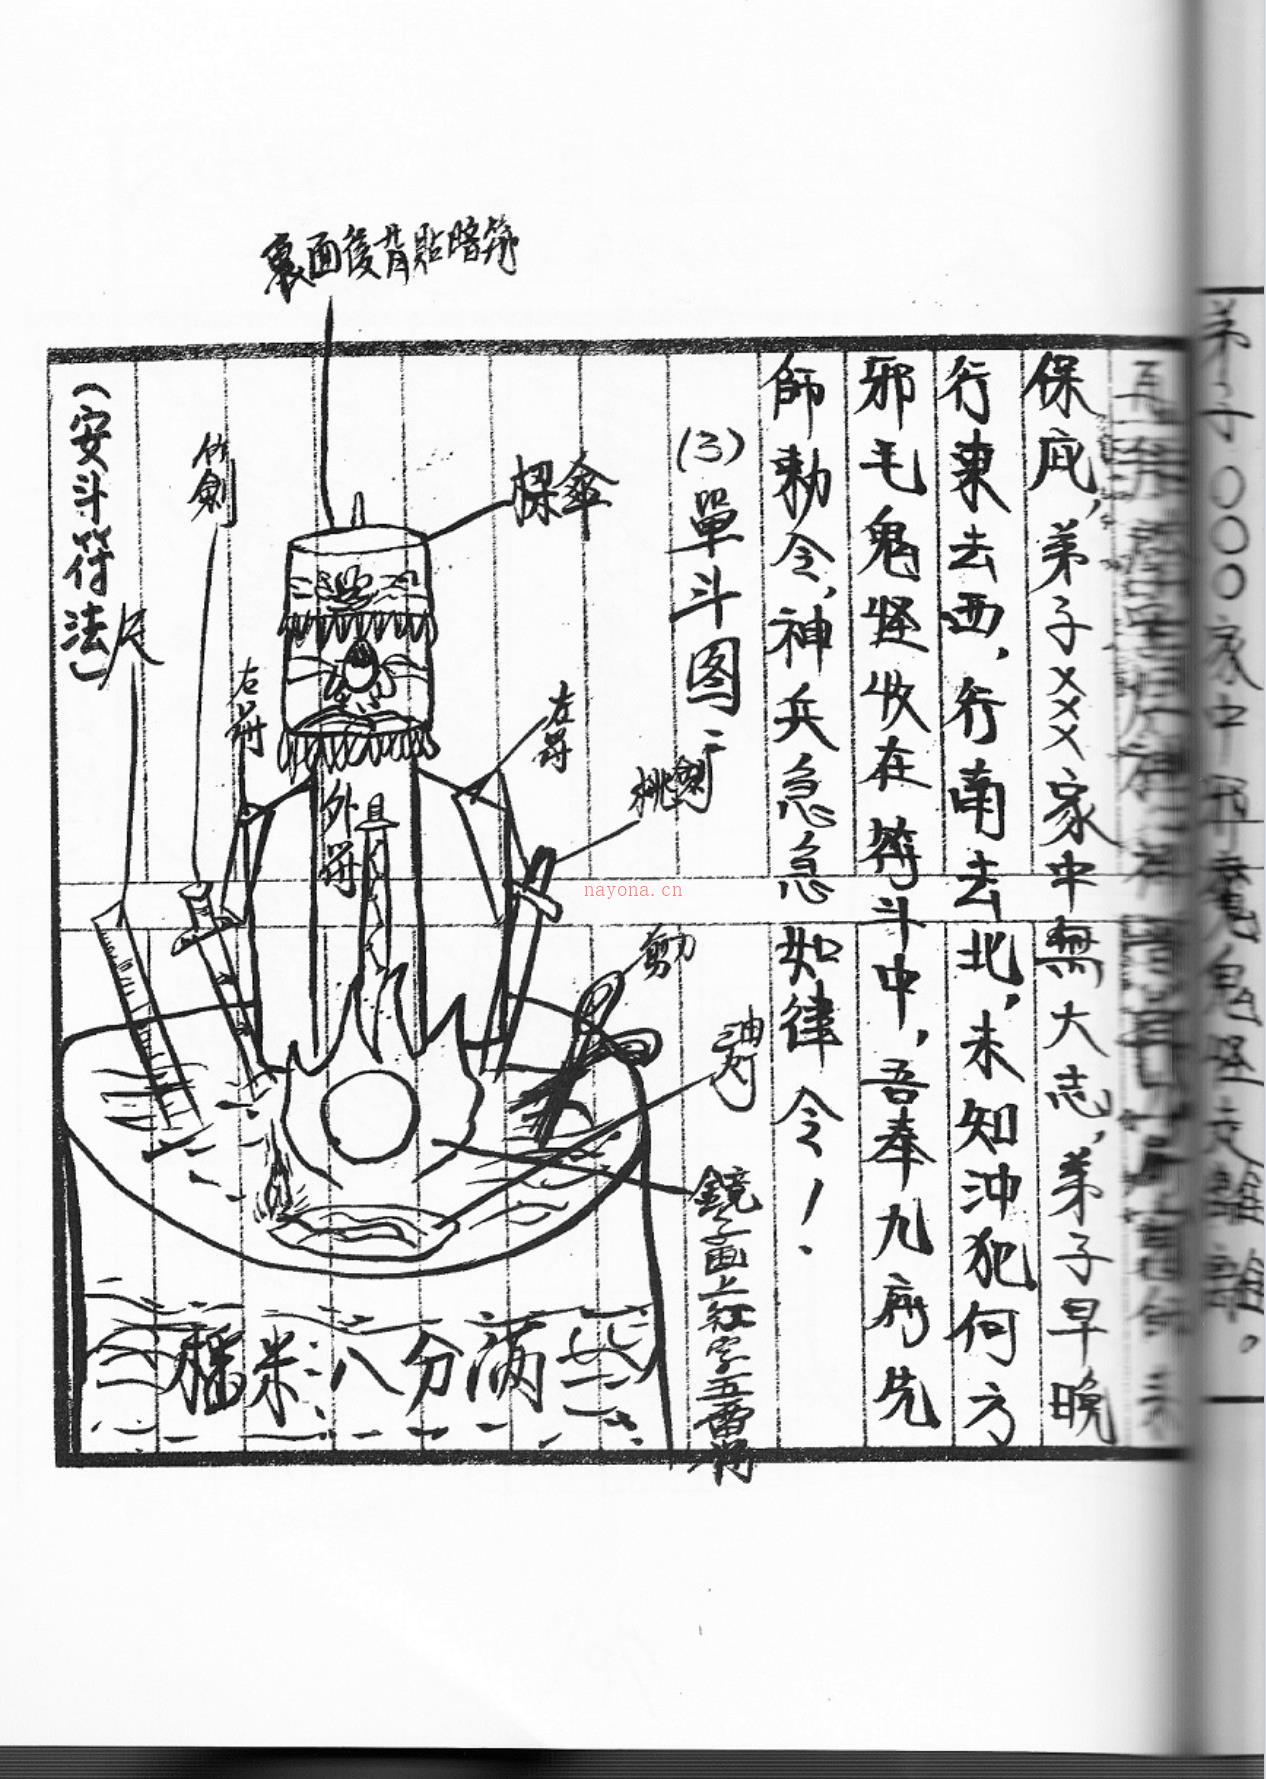 弟子○○○家中邪魔鬼怪走離離。
保庇，弟子×××家中無大志，弟子早晚
行東去西，行南去北，未知沖犯何方
邪毛鬼怪收在符斗中，吾奉九府先
師勅令，神兵急急如律令！
(3)單斗图：
裏面後背貼暗符
傘
左符
桃劍
剪刀
油灯
鏡子画上红字五雷符
外符
右符
竹劍
尺
米八分滿
(安斗符法)
nayona.cn